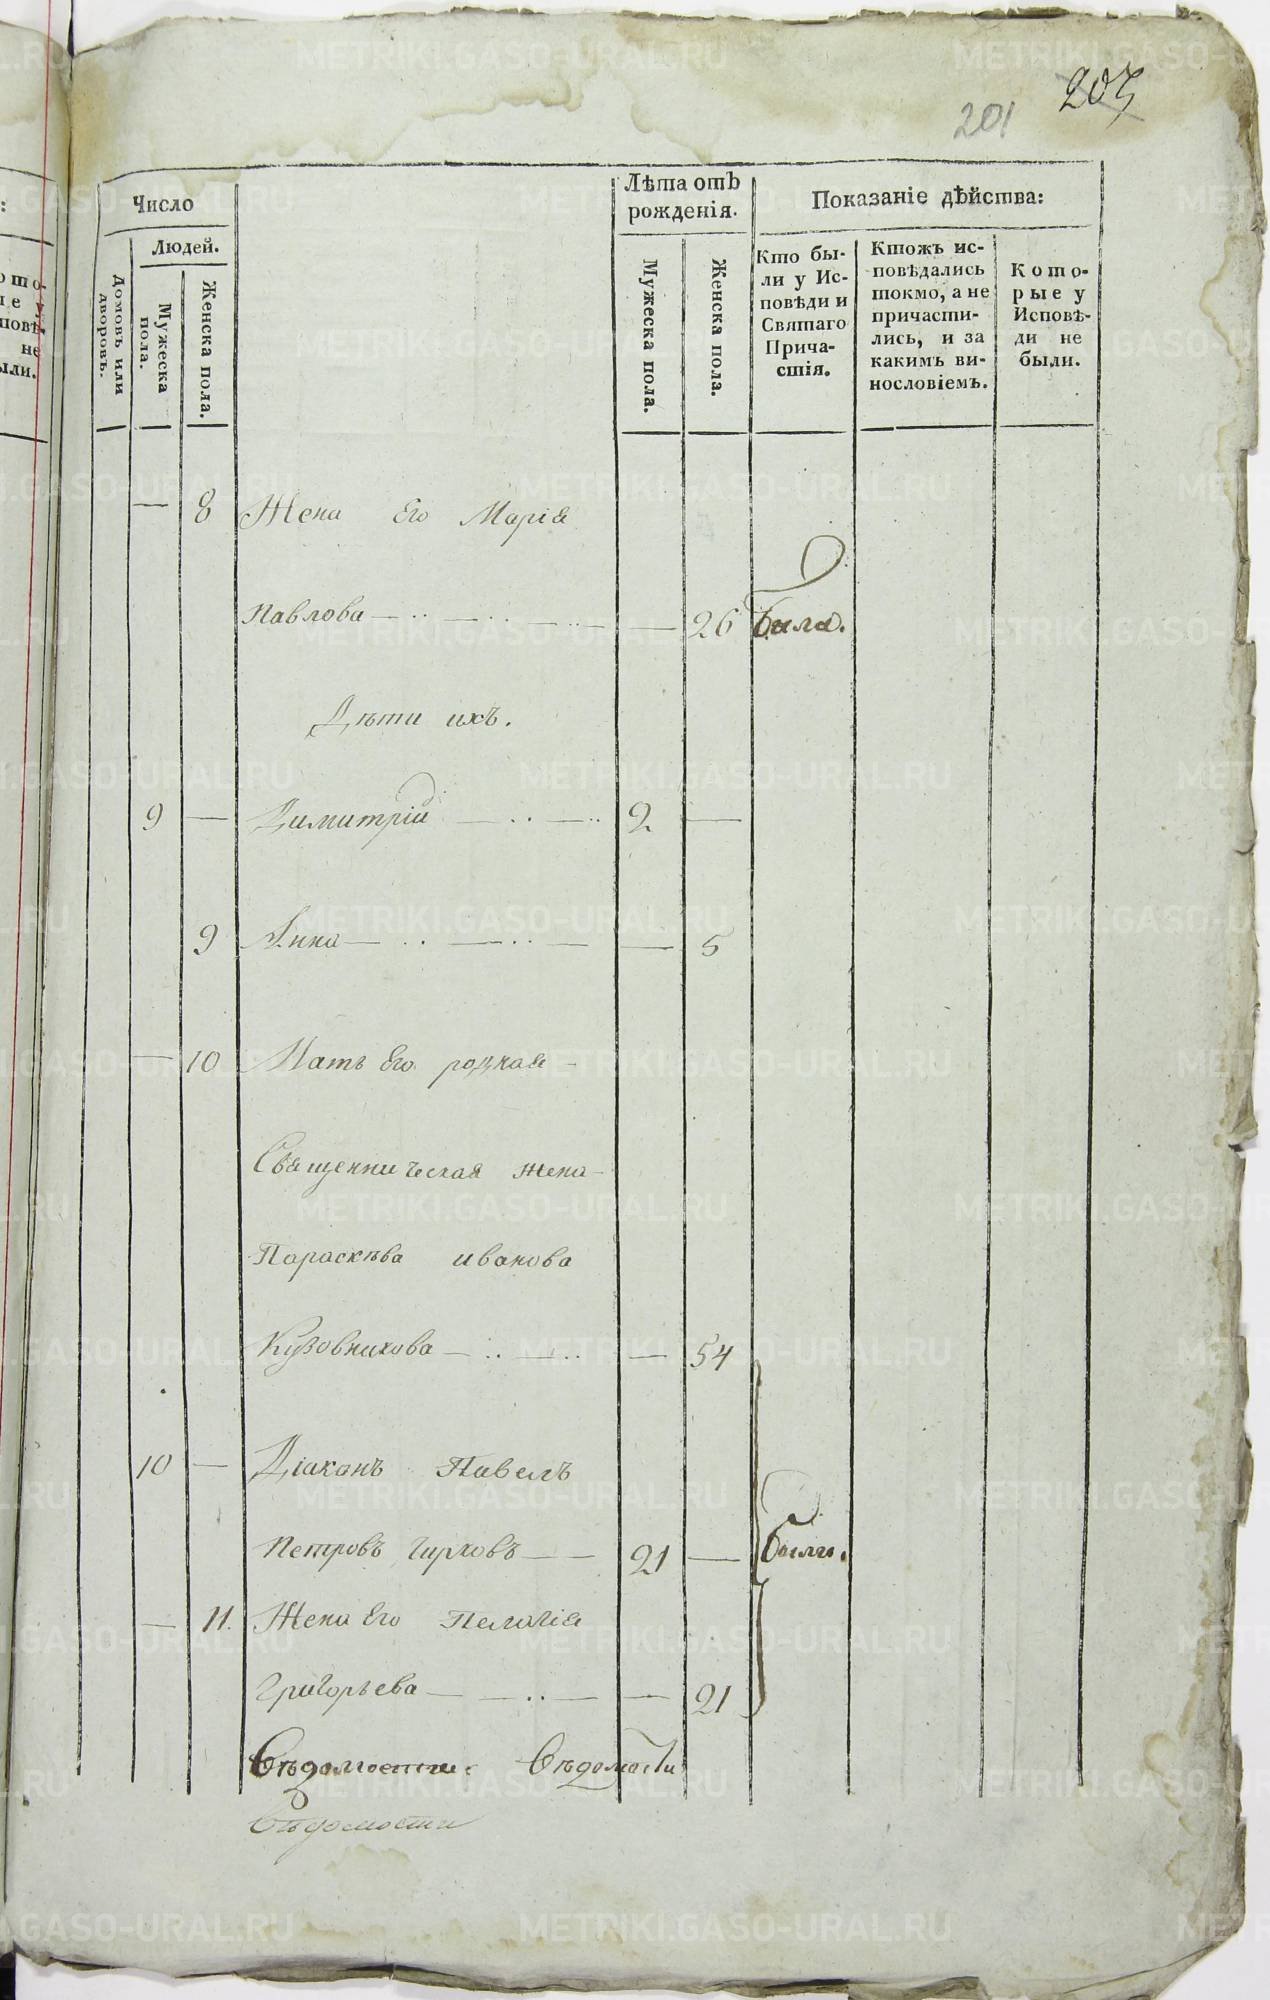 201 205
Число
Людей.
Домовъ или дворовъ.
Мужеска пола.
Женска пола.
Лѣта отъ рожденія.
Мужеска пола.
Женска пола.
Показаніе дѣйства:
Кто бы-
ли у Ис-
повѣди и
Святаго
Прича-
стія.
Ктожъ ис-
повѣдались
токмо, а не
причасти-
лись, и за
какимъ ви-
нословіемъ.
Кото-
рые у
Исповѣ-
ди не
были.
— 8 Жена Его Марія
Павлова — 26 была.
Дѣти ихъ.
9 — Димитрій 2 —
9 Анна — 5
— 10 Мать Его родная
Священническая жена
Параскѣва иванова
Кузовникова — 54
10 — Діаконъ Павелъ
Петровъ Чирковъ 21 — были.
— 11. Жена Его Пелагія
Григорьева — 21
Вѣдомости. Вѣдомости
Вѣдомости
METRIKI.GASO-URAL.RU